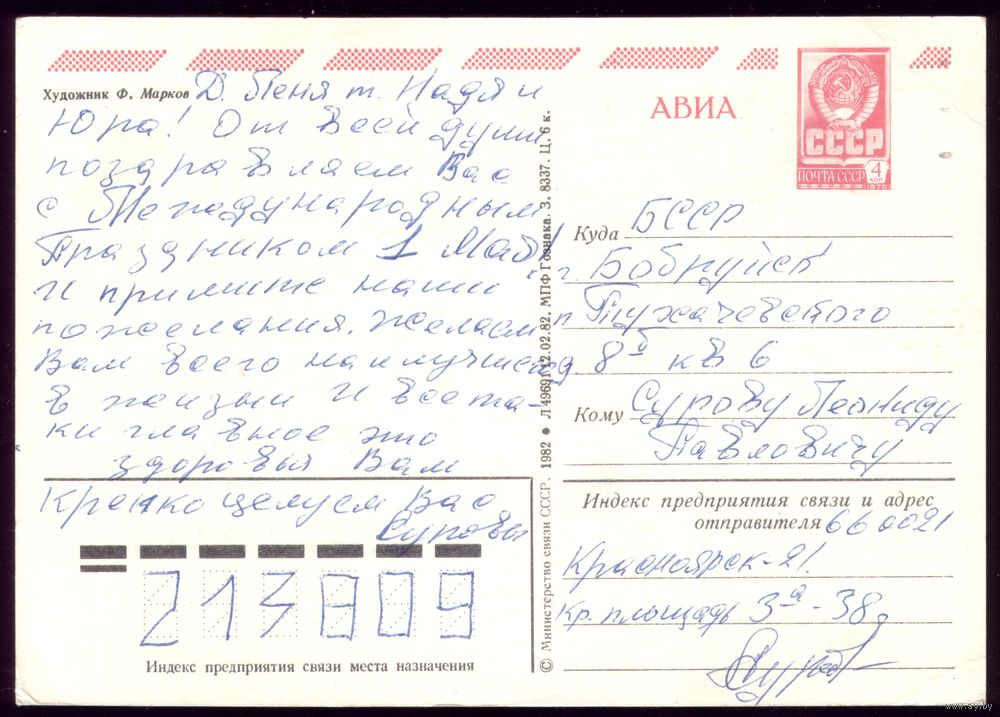 Художник Ф. Марков
Д. Леня т. Надя и
Юра! От всей души
поздравляем Вас
с Международным
Праздником 1 Мая!
И примите наши
пожелания. Желаем
Вам всего наилучшего
в жизни и всета-
ки главное это
здоровья Вам
Крепко целуем Вас
Суровы
213809
Индекс предприятия связи места назначения
© Министерство связи СССР, 1982 ● Л 49691 12.02.82. МПФ Гознака. З. 8337. Ц. 6 к.
АВИА
СССР
ПОЧТА СССР
4
КОП
1976
Куда БССР
г. Бобруйск
Тухачевского
8б кв 6
Кому Сурову Леониду
Павловичу
Индекс предприятия связи и адрес
отправителя 660021
Красноярск-21
Кр. площадь 3а-38
www.ay.by